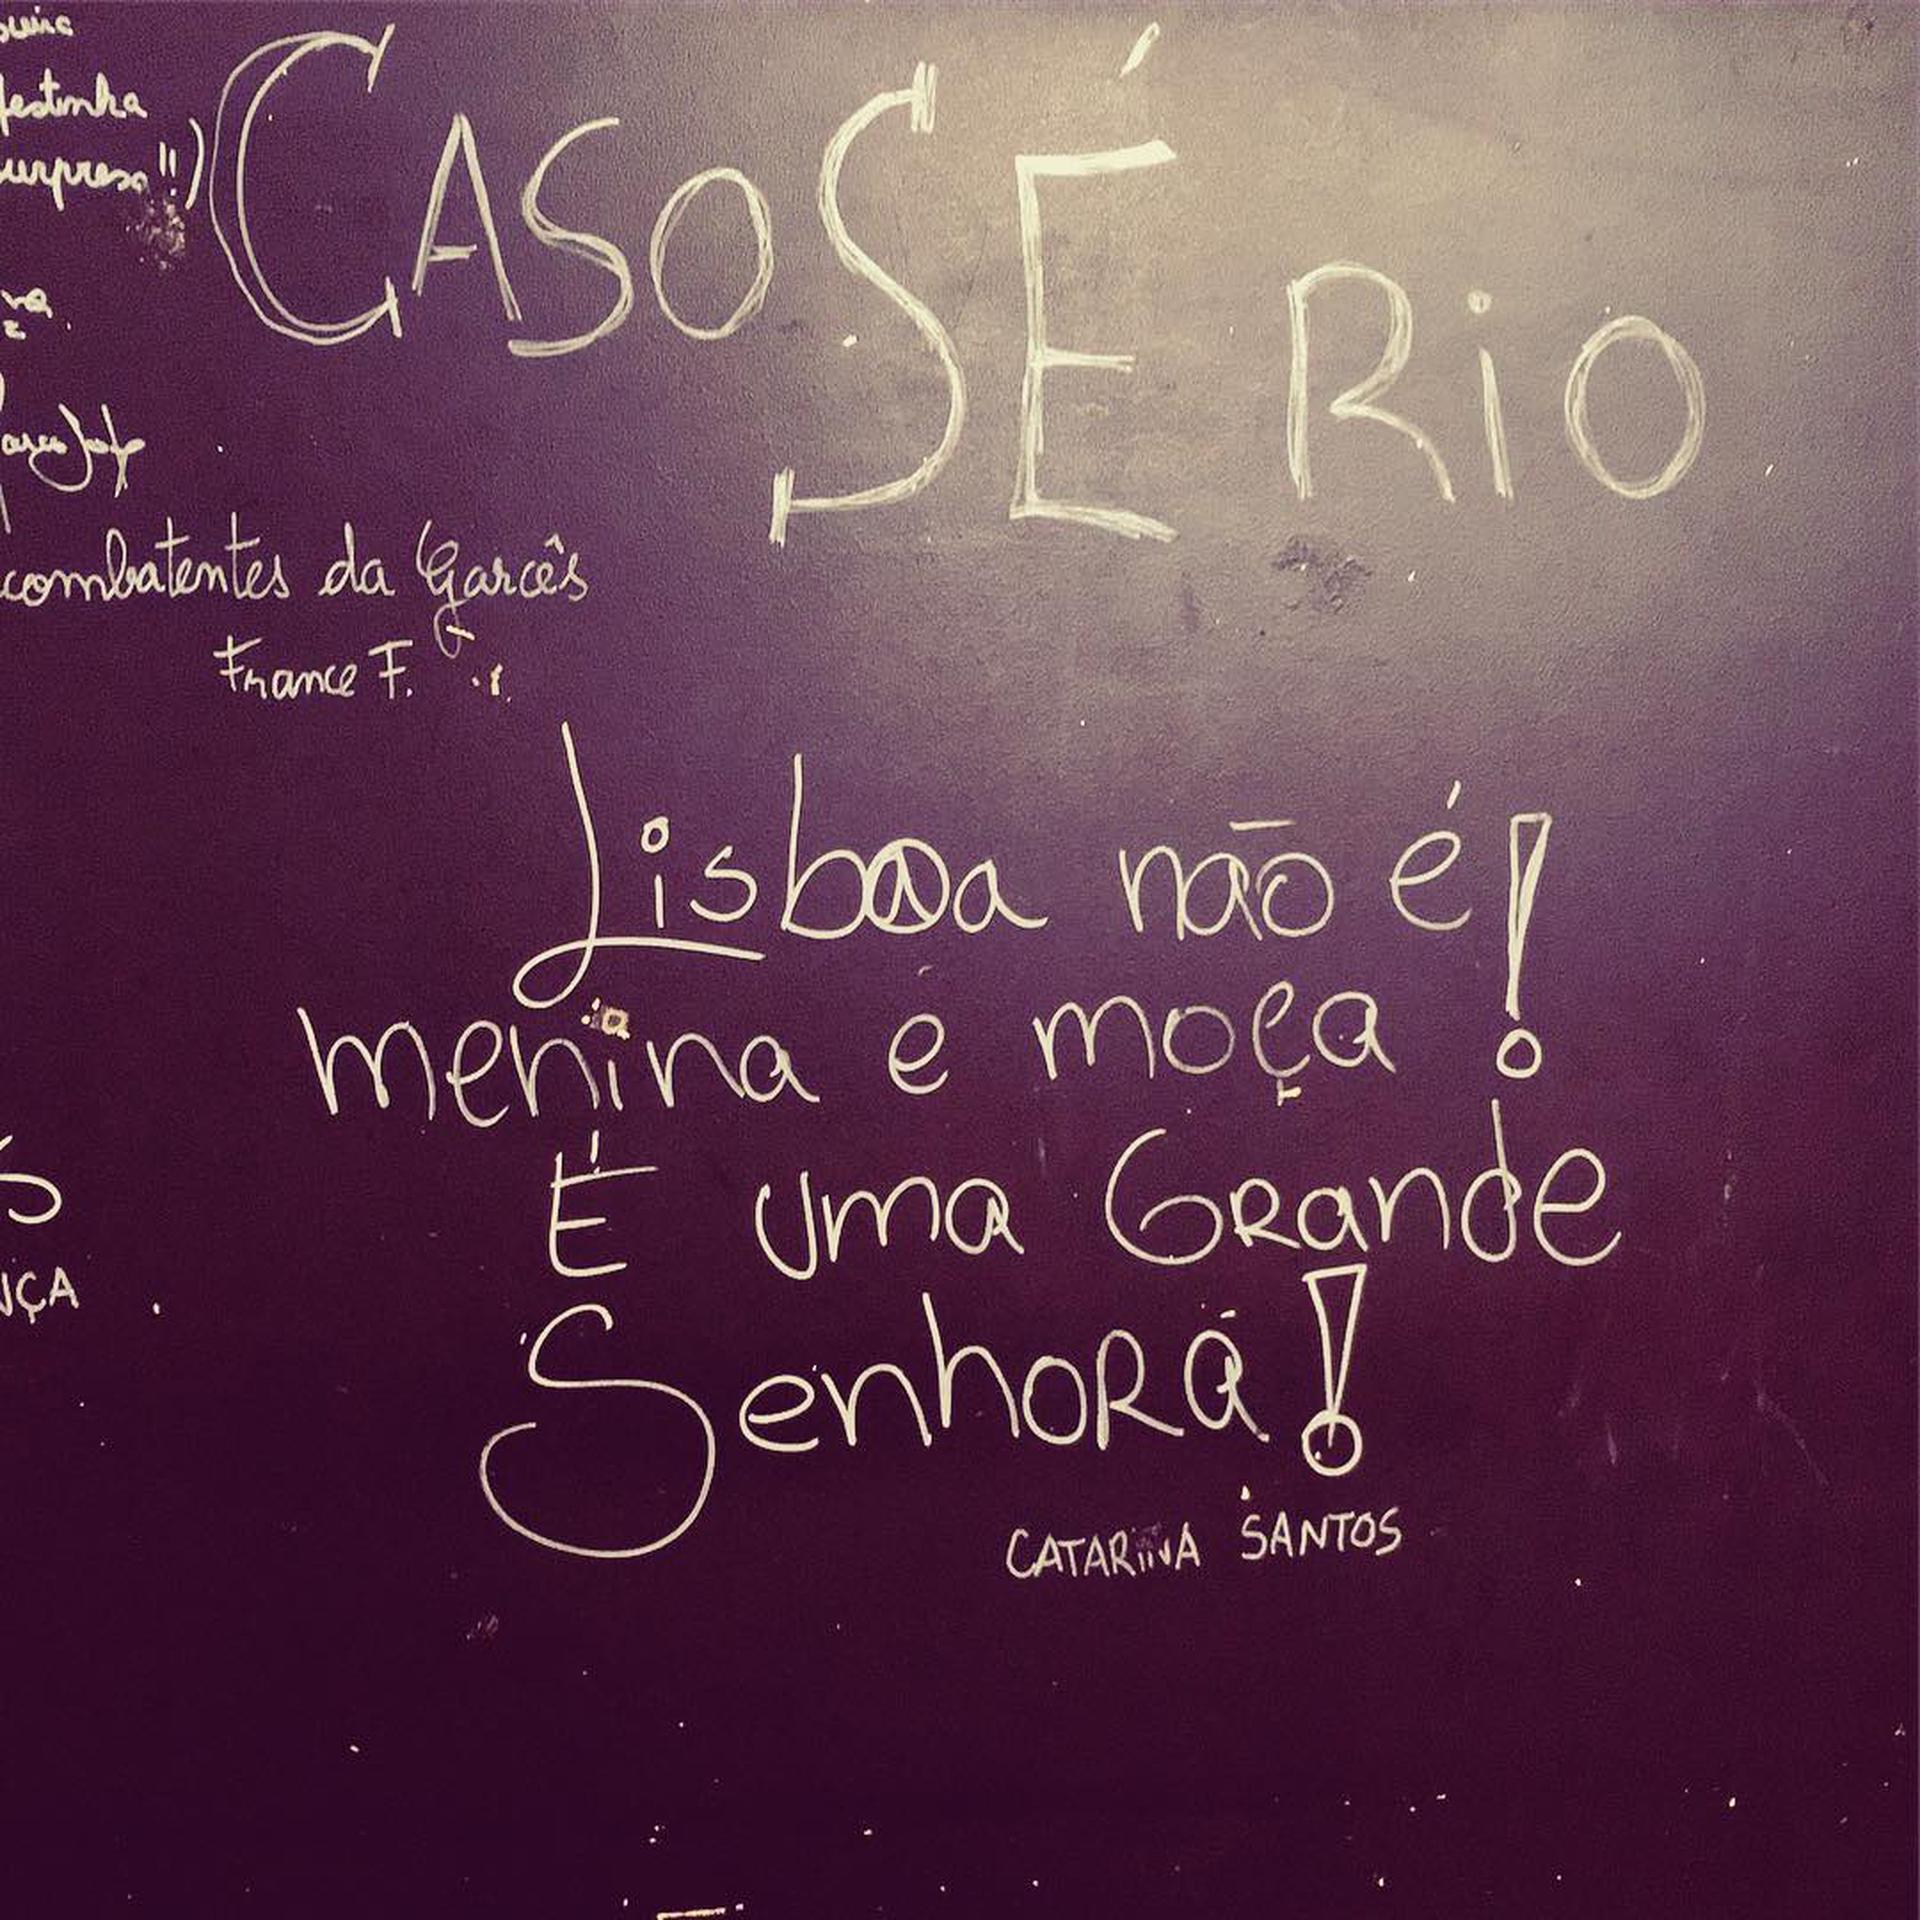 festinha
surpresa!!)
CASO SÉRiO
combatentes da Garcês
France F.
Lisboa não é!
menina e moça
É uma GRande
SenhoRa!
CATARiNA SANTOS